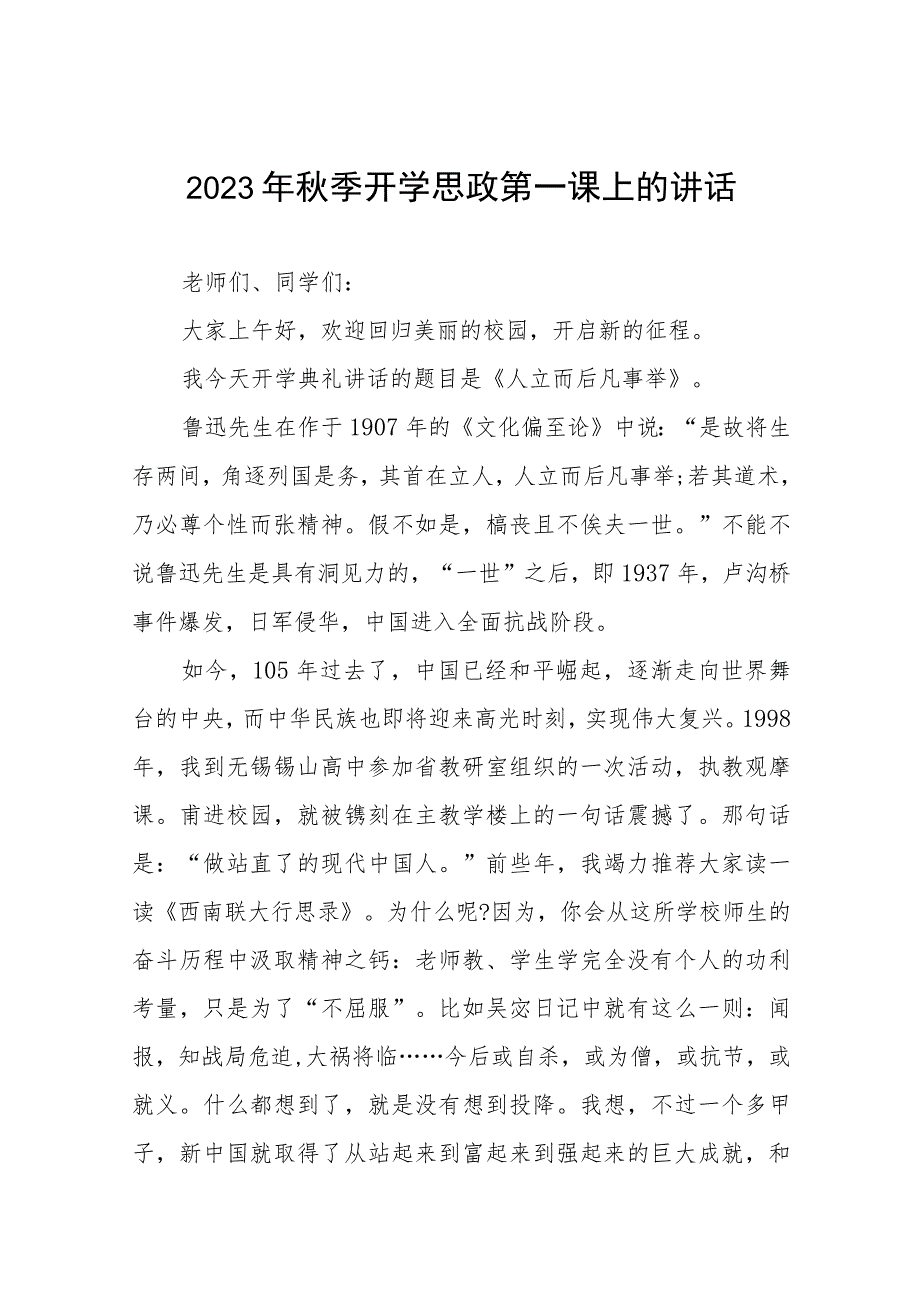 2023年秋季开学思政第一课上的讲话
老师们、同学们：
大家上午好，欢迎回归美丽的校园，开启新的征程。
我今天开学典礼讲话的题目是《人立而后凡事举》。
鲁迅先生在作于1907年的《文化偏至论》中说：“是故将生
存两间，角逐列国是务，其首在立人，人立而后凡事举;若其道术，
乃必尊个性而张精神。假不如是，槁丧且不俟夫一世。”不能不
说鲁迅先生是具有洞见力的，“一世”之后，即1937年，卢沟桥
事件爆发，日军侵华，中国进入全面抗战阶段。
如今，105年过去了，中国已经和平崛起，逐渐走向世界舞
台的中央，而中华民族也即将迎来高光时刻，实现伟大复兴。1998
年，我到无锡锡山高中参加省教研室组织的一次活动，执教观摩
课。甫进校园，就被镌刻在主教学楼上的一句话震撼了。那句话
是：“做站直了的现代中国人。”前些年，我竭力推荐大家读一
读《西南联大行思录》。为什么呢?因为，你会从这所学校师生的
奋斗历程中汲取精神之钙：老师教、学生学完全没有个人的功利
考量，只是为了“不屈服”。比如吴宓日记中就有这么一则：闻
报，知战局危迫,大祸将临……今后或自杀，或为僧，或抗节，或
就义。什么都想到了，就是没有想到投降。我想，不过一个多甲
子，新中国就取得了从站起来到富起来到强起来的巨大成就，和